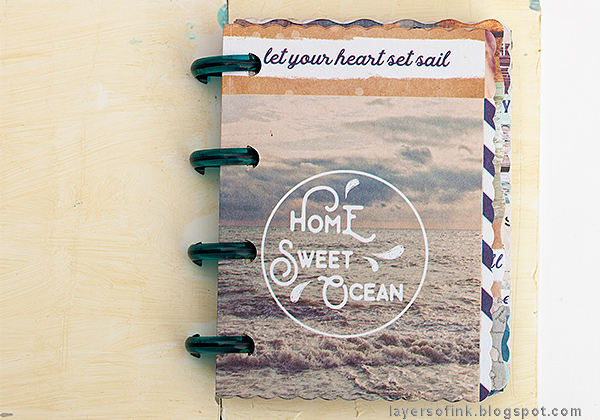 let your heart set sail
HOME
SWEET
OCEAN
layersofink.blogspot.com